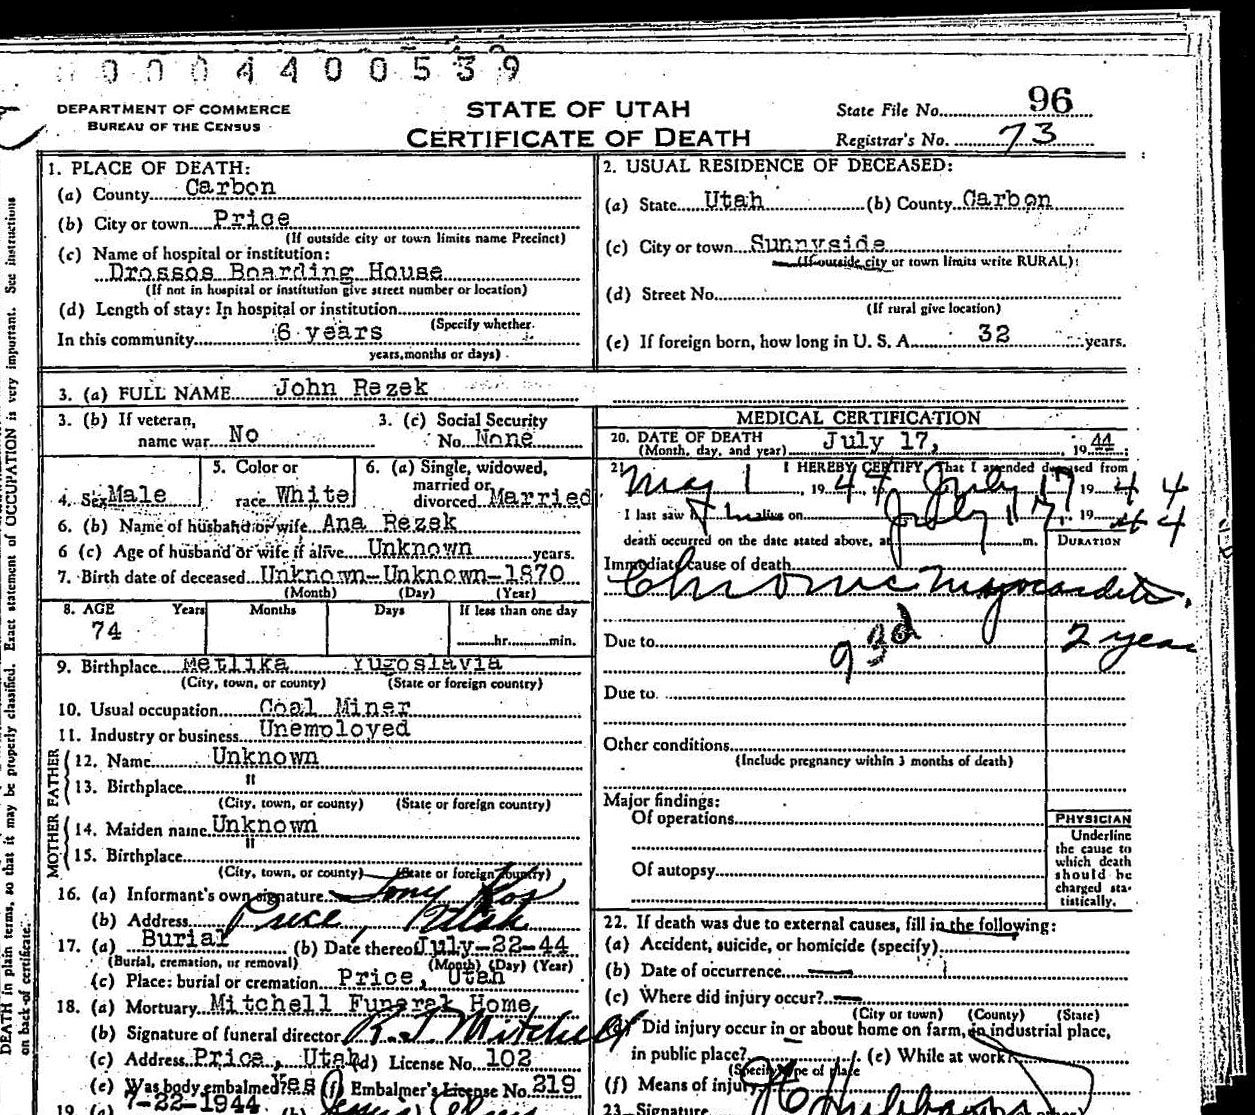 0004400539
DEPARTMENT OF COMMERCE
BUREAU OF THE CENSUS
STATE OF UTAH
CERTIFICATE OF DEATH
State File No. 96
Registrar's No. 73
1. PLACE OF DEATH:
(a) County Carbon
(b) City or town Price
(If outside city or town limits name Precinct)
(c) Name of hospital or institution:
Drossos Boarding House
(If not in hospital or institution give street number or location)
(d) Length of stay: In hospital or institution
(Specify whether
In this community 6 years
years, months or days)
2. USUAL RESIDENCE OF DECEASED:
(a) State Utah (b) County Carbon
(c) City or town Sunnyside
(If outside city or town limits write RURAL)
(d) Street No.
(If rural give location)
(e) If foreign born, how long in U. S. A. 32 years.
3. (a) FULL NAME John Rezek
3. (b) If veteran, name war No
3. (c) Social Security No. None
4. Sex Male
5. Color or race White
6. (a) Single, widowed, married or divorced Married
6. (b) Name of husband or wife Ana Rezek
6 (c) Age of husband or wife if alive Unknown years.
7. Birth date of deceased Unknown-Unknown-1870
(Month) (Day) (Year)
8. AGE Years Months Days If less than one day
74 hr. min.
9. Birthplace Metlika Yugoslavia
(City, town, or county) (State or foreign country)
10. Usual occupation Coal Miner
11. Industry or business Unemployed
FATHER
12. Name Unknown
13. Birthplace "
(City, town, or county) (State or foreign country)
MOTHER
14. Maiden name Unknown
15. Birthplace "
(City, town, or county) (State or foreign country)
16. (a) Informant's own signature Tony Kos
(b) Address Price, Utah
17. (a) Burial (b) Date thereof July-22-44
(Burial, cremation, or removal) (Month) (Day) (Year)
(c) Place: burial or cremation Price, Utah
18. (a) Mortuary Mitchell Funeral Home
(b) Signature of funeral director R. J. Mitchell
(c) Address Price, Utah (d) License No. 102
(e) Was body embalmed Yes (f) Embalmer's License No. 219
7-22-1944
MEDICAL CERTIFICATION
20. DATE OF DEATH
(Month, day, and year) July 17, 1944
21. I HEREBY CERTIFY, That I attended deceased from
May 1, 1944 July 17 1944
I last saw him alive on July 17, 1944
death occurred on the date stated above, at m.
DURATION
Immediate cause of death
Chronic Myocarditis.
93d
Due to 2 year
Due to
Other conditions
(Include pregnancy within 3 months of death)
Major findings:
Of operations
Of autopsy
PHYSICIAN
Underline
the cause to
which death
should be
charged sta-
tistically.
22. If death was due to external causes, fill in the following:
(a) Accident, suicide, or homicide (specify)
(b) Date of occurrence
(c) Where did injury occur?
(City or town) (County) (State)
(d) Did injury occur in or about home on farm, in industrial place,
in public place? (e) While at work
(Specify type of place
(f) Means of injury
23. Signature
DEATH in plain terms, so that it may be properly classified. Exact statement of OCCUPATION is very important. See instructions
on back of certificate.